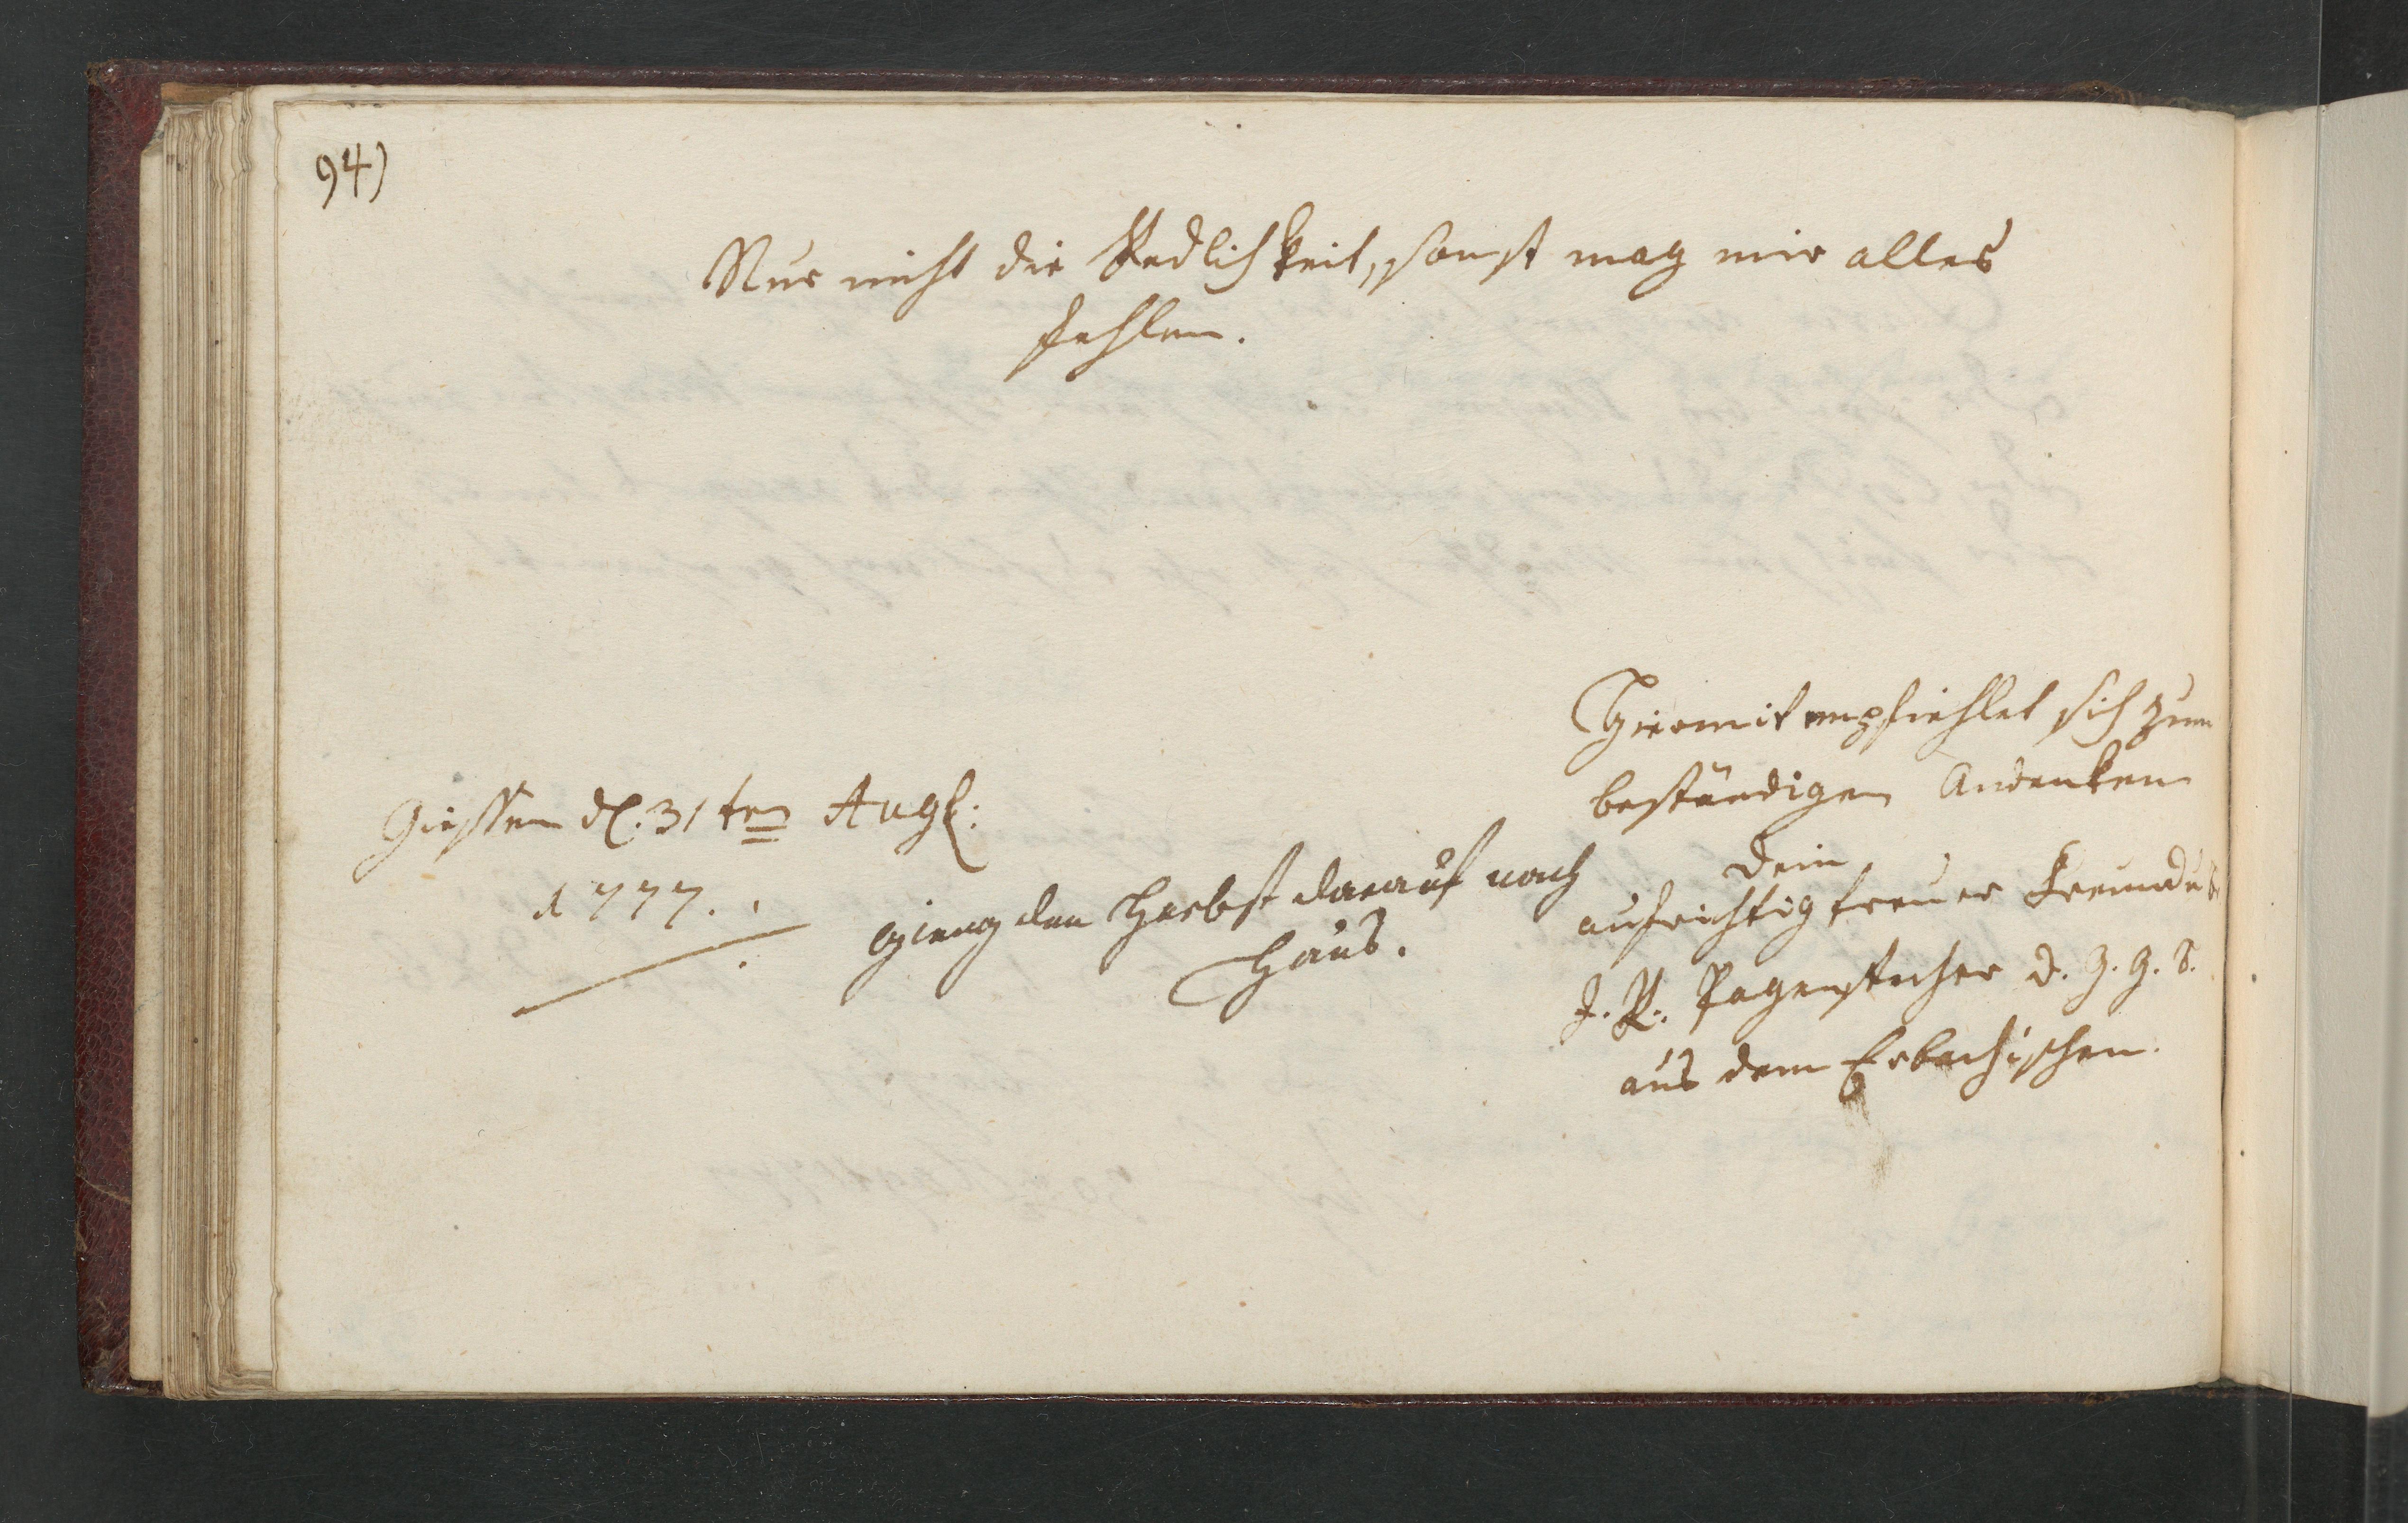 94)
Nur nicht die Redlichkeit, sonst mag mir alles
fehlen.
Giessen d. 31ten Aug:
1777.
gieng den Herbst darauf nach
Haus.
Hiermit empfiehlet sich zum
beständigen Andenken
Dein
aufrichtig treuer Freund
J. R. Pagenstecher d. G. G. B.
aus dem Erbachischen.